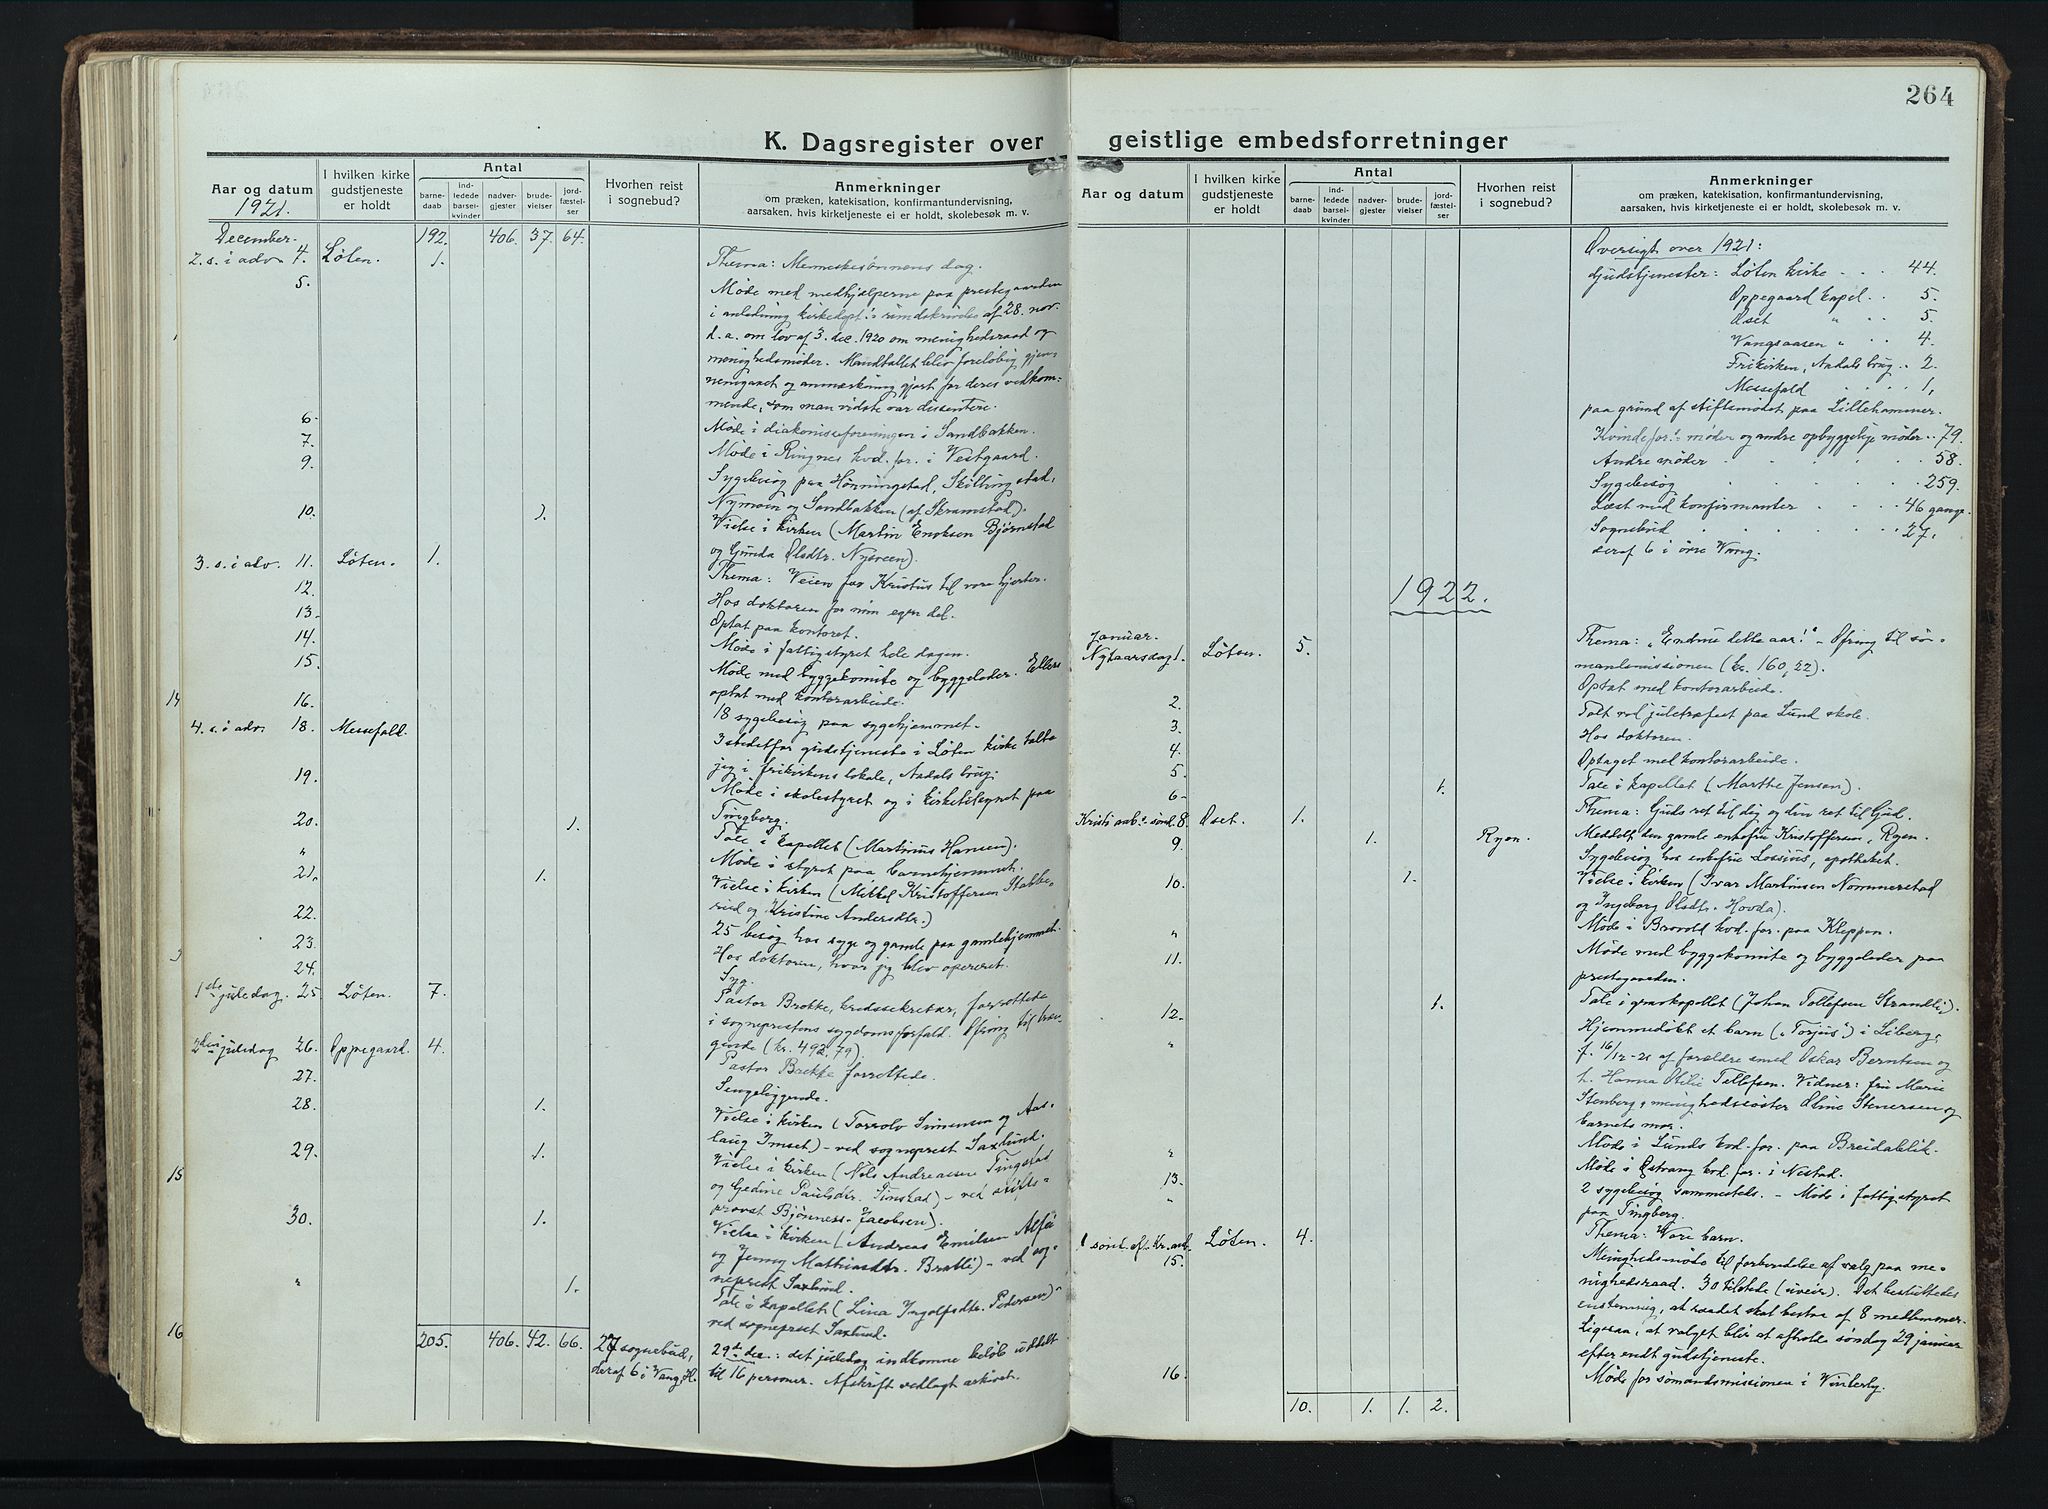 264
K. Dagsregister over geistlige embedsforretninger
Aar og datum
I hvilken kirke gudstjeneste er holdt
Antal
barnedaab
indledede barselkvinder
nadvergjester
brudevielser
jordfæstelser
Hvorhen reist i sognebud?
Anmerkninger
om præken, katekisation, konfirmantundervisning,
aarsaken, hvis kirketjeneste ei er holdt, skolebesøk m. v.
1921.
December. 192. 406. 37. 64.
2. s. i adv. 4. Løten. 1. Thema: Menneskesønnens dag.
5. Møde med medhjælperne paa prestegaarden
i anledning kirkedept.s rundskrivelse af 28. nov.
d. a. om lov af 3. dec. 1920 om menighedsraad og
menighedsmøder. Mandtallet blev foreløbig gjen-
nemgaaet og anmærkning gjort for deres vedkom-
mende, som man vidste var dissentere.
6. Møde i diakonisseforeningen i Sandbakken.
7. Møde i Ringnes kvd. for. i Vestgaard.
9. Sygebesøg paa Hønningstad, Skillingstad,
Nymoen og Sandbakken (af Skramstad).
10. 1. Vielse i kirken (Martin Enoksen Bjørnstad
og Gunda Olsdtr. Nysveen).
3. s. i adv. 11. Løten. 1. Thema: Veien for Kristus til vore hjerter.
12. Hos doktoren for min egen del.
13. Optat paa kontoret.
14. Møde i fattigstyret hele dagen.
15. Møde med byggekomite og byggeleder. Ellers
optat med kontorarbeide.
16. 18 sygebesøg paa sygehjemmet.
4. s. i adv. 18. Messefald. Istedetfor gudstjeneste i Løten kirke talte
jeg i frikirkens lokale, Aadals brug.
19. Møde i skolestyret og i kirketilsynet paa
Tingberg.
20. 1. Tale i kapellet (Martinus Hansen).
" Møde i styret paa barnehjemmet.
21. 1. Vielse i kirken (Mikkel Kristoffersen Stabbe-
rud og Kristine Andersdtr.)
22. 25 besøg hos syge og gamle paa gamlehjemmet.
23. Hos doktoren, hvor jeg blev opereret.
24. Syg.
1ste juledag. 25. Løten. 7. Pastor Brokke, kredssekretær, forrettede
i sogneprestens sygdomsforfald. Ofring til træn-
gende (kr. 492,79).
2den juledag 26. Oppegaard. 4. Pastor Backe forrettede.
27. Sengeliggende.
28. 1. Vielse i kirken (Torvolv Simensen og Aas-
laug Imset) - ved sogneprest Saxlund.
29. 1. Vielse i kirken (Nils Andreassen Tingstad
og Gedine Paulsdtr. Finstad) - ved stifts-
provst Bjønness-Jacobsen).
30. 1. Vielse i kirken (Andreas Emilsen Alfei
og Jenny Mathiasdtr. Bratli) - ved sog-
neprest Saxlund.
" 1. Tale i kapellet (Lina Ingolfsdtr. Pedersen) -
ved sogneprest Saxlund.
205. 406. 42. 66. 27 sognebud, 29de dec.: det juledag indkomne beløb uddelt
deraf 6 i Vang, H. til 16 personer. Afskrift vedlagt arkivet.
Aar og datum
I hvilken kirke gudstjeneste er holdt
Antal
barnedaab
indledede barselkvinder
nadvergjester
brudevielser
jordfæstelser
Hvorhen reist i sognebud?
Anmerkninger
om præken, katekisation, konfirmantundervisning,
aarsaken, hvis kirketjeneste ei er holdt, skolebesøk m. v.
Oversigt over 1921:
Gudstjenester: Løten kirke . . . 44.
Oppegaard kapel . . 5.
Øset " . . 5.
Vangsaasen " . . 4.
Frikirken, Aadals brug . . 2.
Messefald . . . . 1,
paa grund af stiftsmødet paa Lillehammer.
Kvindefor.s møder og andre opbyggelige møder . . 79.
Andre møder . . . . . 58.
Sygebesøg . . . . . 259.
Læst med konfirmanter . . . 46 gange.
Sognebud . . . . . 27,
deraf 6 i øvre Vang.
1922.
Januar.
Nytaarsdag 1. Løten. 5. Thema: "Endnu dette aar!" - Ofring til sø-
mandsmissionen (kr. 160,22).
2. Optat med kontorarbeide.
3. Talt ved juletræfest paa Lund skole.
4. Hos doktoren.
5. Optaget med kontorarbeide.
6. 1. Tale i kapellet (Marthe Jensen).
Kristi aab.s sønd. 8. Øset. 1. Thema: Guds ret til dig og din ret til Gud.
9. 1. Ryen. Meddelt den gamle enkefru Kristoffersen, Ryen.
Sygebesøg hos enkefru Lossius, apotheket.
10. 1. Vielse i kirken (Ivar Martinsen Nommerstad
og Ingeborg Olsdtr. Hovda).
" Møde i Brovold kvd. for. paa Kleppen.
11. Møde med byggekomite og byggeleder paa
prestegaarden.
12. 1. Tale i gravkapellet (Johan Tollefsen Strandli).
" Hjemmedøbt et barn ("Torjus") i Liberg,
f. 16/12-21 af forældre smed Oskar Berntsen og
h. Hanna Otilie Tollefsen. Vidner: fru Marie
Stenberg, menighedssøster Oline Stenersen og
barnets mor.
" Møde i Lunds kvd. for. paa Breidablik.
13. Møde i Østvang kvd. for. i Nestad.
" 2 sygebesøg sammesteds. - Møde i fattigstyret
paa Tingberg.
1 sønd. eft. Kr. aab. 15. Løten. 4. Thema: Vore barn.
Menighedsmøde til forberedelse af valg paa me-
nighedsraad. 30 tilstede (uveir). Det besluttedes
enstemmig, at raadet skal bestaa af 8 medlemmer.
Ligesaa, at valget blir at afholde søndag 29 januar
efter endt gudstjeneste.
16. Møde for sømandsmissionen i Vinterly.
10. 1. 1. 2.
14
3
15
16